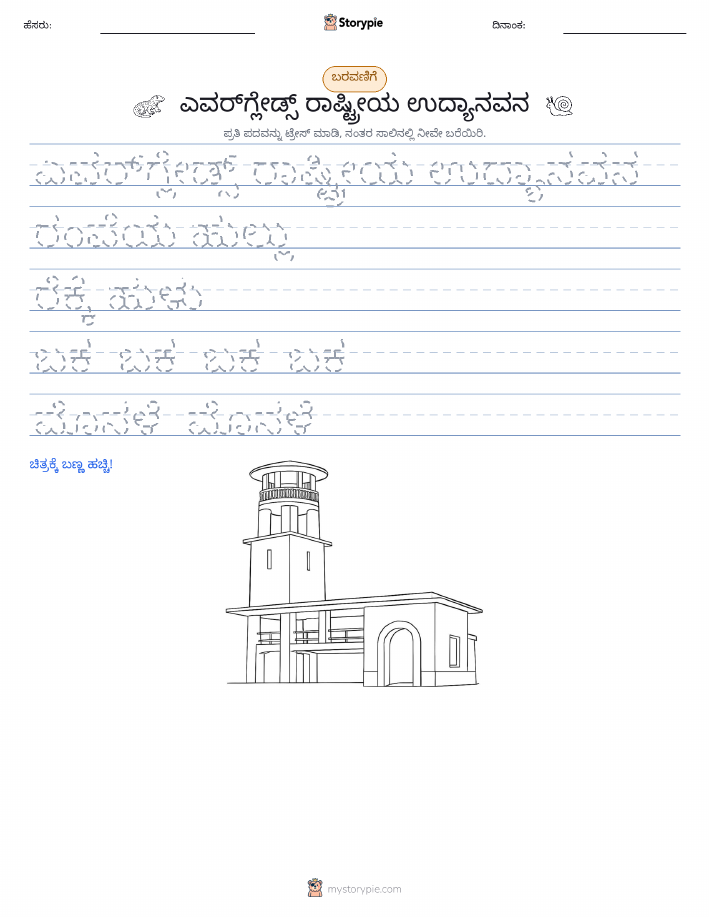 ಹೆಸರು:
Storypie
ದಿನಾಂಕ:
ಬರವಣಿಗೆ
ಎವರ್‌ಗ್ಲೇಡ್ಸ್ ರಾಷ್ಟ್ರೀಯ ಉದ್ಯಾನವನ
ಪ್ರತಿ ಪದವನ್ನು ಟ್ರೇಸ್ ಮಾಡಿ, ನಂತರ ಸಾಲಿನಲ್ಲಿ ನೀವೇ ಬರೆಯಿರಿ.
ಎವರ್‌ಗ್ಲೇಡ್ಸ್ ರಾಷ್ಟ್ರೀಯ ಉದ್ಯಾನವನ
ರಂಪೆಯ ಹುಲ್ಲು
ರೆಕ್ಕೆ ಹುಳು
ಬಕ ಬಕ ಬಕ ಬಕ
ಮೊಸಳೆ ಮೊಸಳೆ
ಚಿತ್ರಕ್ಕೆ ಬಣ್ಣ ಹಚ್ಚಿ!
mystorypie.com